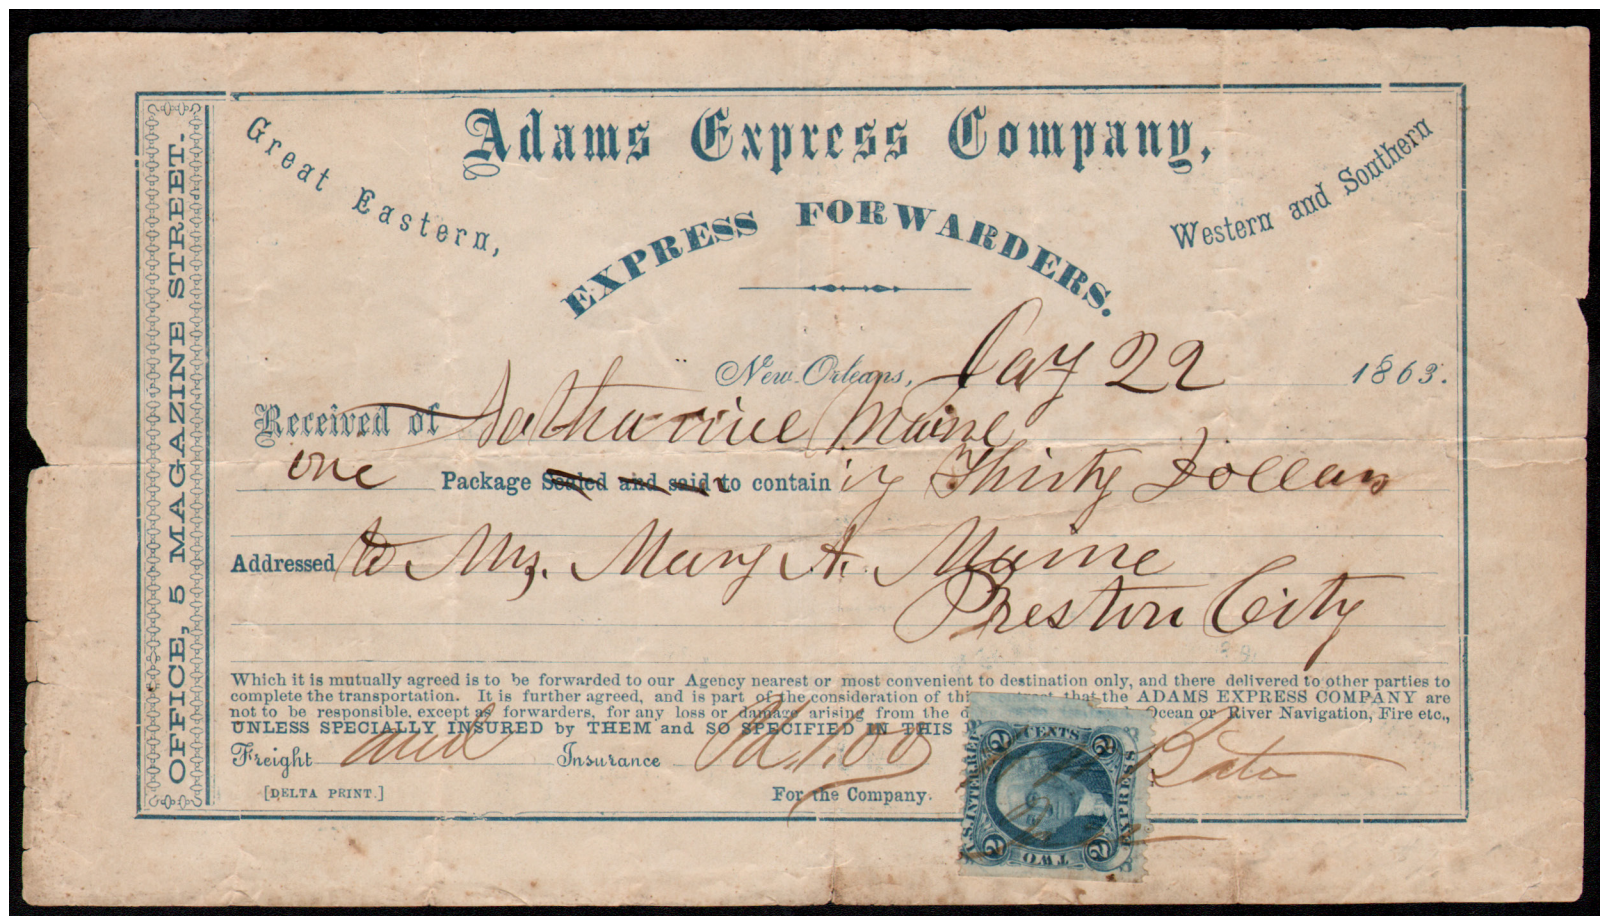 Adams Express Company,
Great Eastern,
Western and Southern
EXPRESS FORWARDERS.
OFFICE, 5 MAGAZINE STREET.
New Orleans, Jany 22 1863.
Received of Maine
one Package Sealed and said to contain'g Thirty Dollars
Addressed to Mrs. Mary A. Maine
Preston City
Which it is mutually agreed is to be forwarded to our Agency nearest or most convenient to destination only, and there delivered to other parties to
complete the transportation. It is further agreed, and is part of the consideration of this contract that the ADAMS EXPRESS COMPANY are
not to be responsible, except as forwarders, for any loss or damage arising from the Ocean or River Navigation, Fire etc.,
UNLESS SPECIALLY INSURED by THEM and SO SPECIFIED IN THIS
Freight and Insurance Pd. 1.00
[DELTA PRINT.] For the Company.
U.S. INTER. REV.
2 CENTS 2
EXPRESS
2 TWO 2